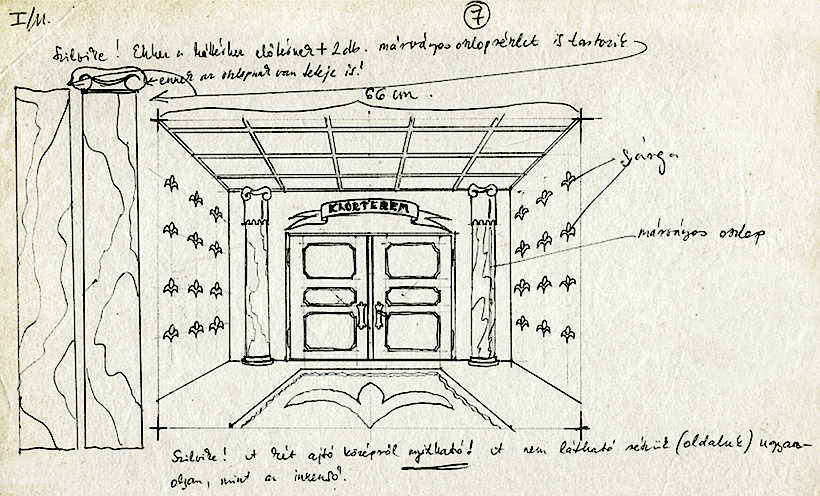 I/11.
7
Szilvike! Ehhez a háttérhez előtérnek + 2 db. márványos oszloprészlet is tartozik
ennek az oszlopnak van teteje is!
66 cm.
sárga
KAORTEREM
márványos oszlop
Szilvike! A két ajtó középről nyitható! A nem látható részük (oldaluk) ugyan-
olyan, mint az